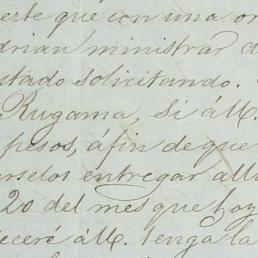 erte que con una or
drian ministrar d
stado solicitando.
Rugama, Si áM.
pesos, áfin de que
arselos entregar all
20 del mes que hoy
eceré áM. tenga la